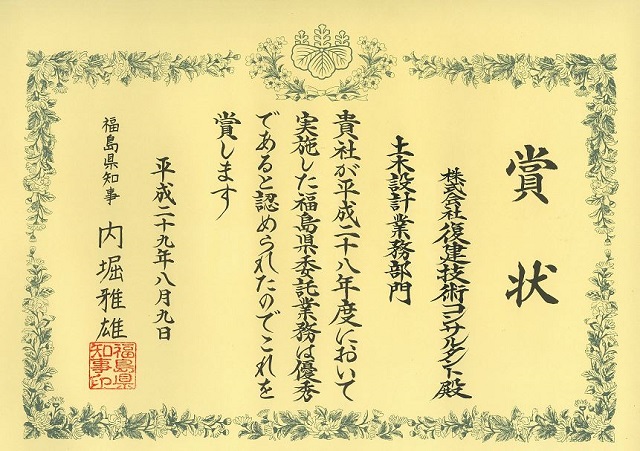 賞状
株式会社復建技術コンサルタント殿
土木設計業務部門
貴社が平成二十八年度において
実施した福島県委託業務は優秀
であると認められたのでこれを
賞します
平成二十九年八月九日
福島県知事 内堀雅雄
福島県
知事印